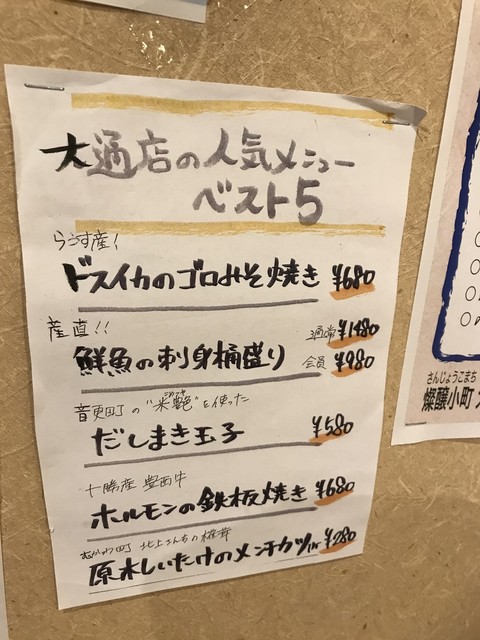 大通店の人気メニュー
ベスト5
らうす産!
ドスイカのゴロみそ焼き ¥680
産直!!
鮮魚の刺身桶盛り 通常 ¥1480
会員 ¥980
音更町の "米艶" を使った
だしまき玉子 ¥580
十勝産 豊西牛
ホルモンの鉄板焼き ¥680
むかわ町 北上さんちの椎茸
原木しいたけのメンチカツ ¥280
さんじょうこまち
燦醸小町